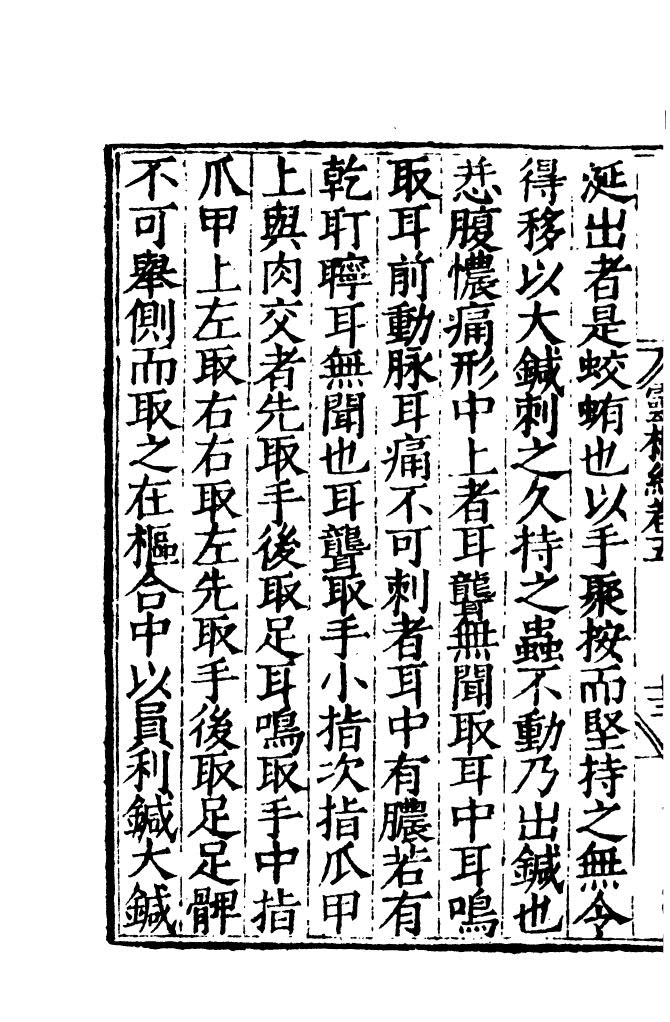 靈樞經卷五
涎出者是蛟蛕也以手聚按而堅持之無令
得移以大鍼刺之久持之蟲不動乃出鍼也
恙腹憹痛形中上者耳聾無聞取耳中耳鳴
取耳前動脉耳痛不可刺者耳中有膿若有
乾耵聹耳無聞也耳聾取手小指次指爪甲
上與肉交者先取手後取足耳鳴取手中指
爪甲上左取右右取左先取手後取足足髀
不可舉側而取之在樞合中以員利鍼大鍼